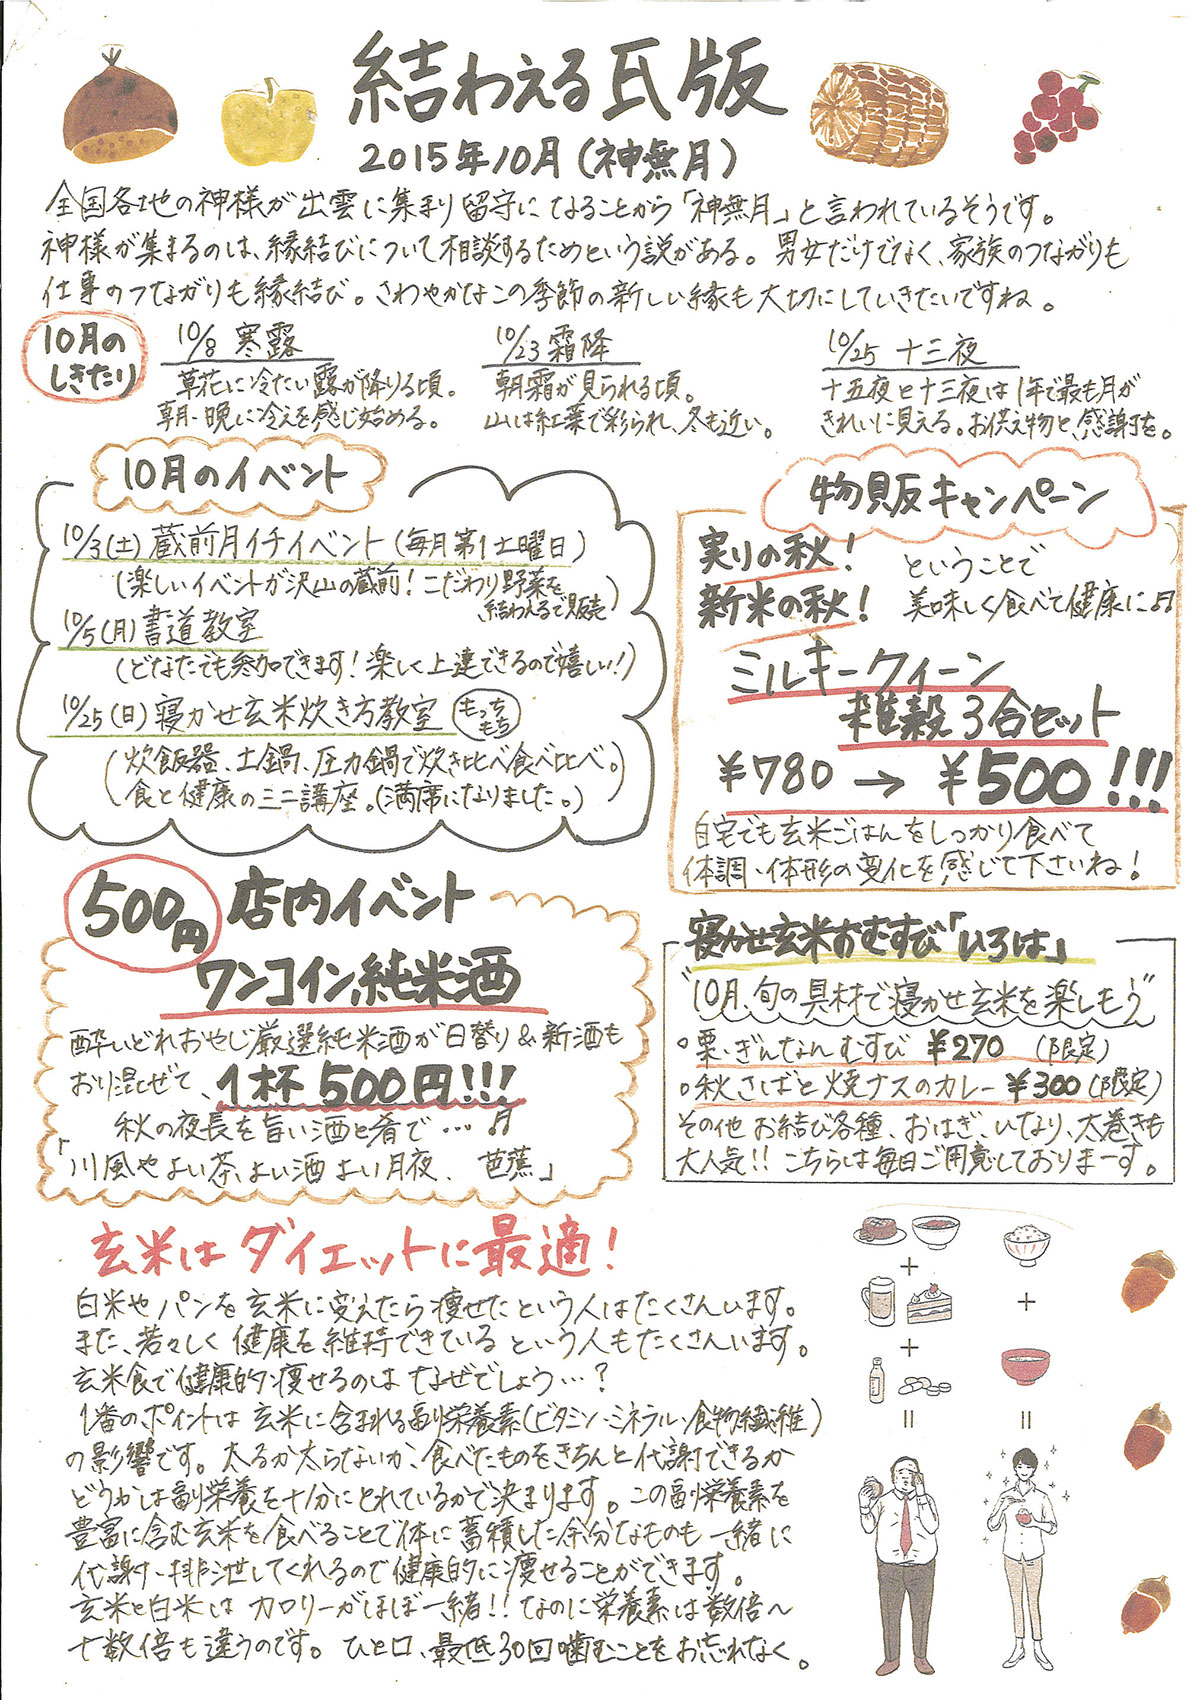 結わえる瓦版
2015年10月(神無月)
全国各地の神様が出雲に集まり留守になることから「神無月」と言われているそうです。
神様が集まるのは、縁結びについて相談するためという説がある。男女だけでなく、家族のつながりも
仕事のつながりも縁結び。さわやかなこの季節の新しい縁も大切にしていきたいですね。
10月の
しきたり
10/8 寒露
草花に冷たい露が降りる頃。
朝・晩に冷えを感じ始める。
10/23 霜降
朝霜が見られる頃。
山は紅葉で彩られ、冬も近い。
10/25 十三夜
十五夜と十三夜は1年で最も月が
きれいに見える。お供え物と、感謝を。
10月のイベント
10/3(土)蔵前月イチイベント(毎月第1土曜日)
(楽しいイベントが沢山の蔵前!こだわり野菜を
結わえるで販売)
10/5(月)書道教室
(どなたでも参加できます!楽しく上達できるので嬉しい!)
10/25(日)寝かせ玄米炊き方教室 もっち
もち
(炊飯器、土鍋、圧力鍋で炊き比べ食べ比べ。
食と健康のミニ講座。(満席になりました。)
物販キャンペーン
実りの秋!
新米の秋!
ということで
美味しく食べて健康に♬
ミルキークィーン
雑穀3合セット
¥780→¥500!!!
自宅でも玄米ごはんをしっかり食べて
体調・体形の変化を感じて下さいね!
500円 店内イベント
ワンコイン純米酒
酔いどれおやじ厳選純米酒が日替り&新酒も
おり混ぜて、1杯500円!!!
秋の夜長を旨い酒と肴で…♬
「川風やよい茶、よい酒よい月夜、 芭蕉」
寝かせ玄米おむすび「いろは」
"10月、旬の具材で寝かせ玄米を楽しもう"
・栗・ぎんなんむすび ¥270 (限定)
・秋さばと焼ナスのカレー ¥300(限定)
その他お結び各種、おはぎ、いなり、太巻きも
大人気!!こちらは毎日ご用意しておりまーす。
玄米はダイエットに最適!
白米やパンを玄米に変えたら痩せたという人はたくさんいます。
また、若々しく健康を維持できているという人もたくさんいます。
玄米食で健康的に痩せるのはなぜでしょう…?
1番のポイントは玄米に含まれる副栄養素(ビタミン・ミネラル・食物繊維)
の影響です。太るか太らないか、食べたものをきちんと代謝できるか
どうかは副栄養を十分にとれているかで決まります。この副栄養素を
豊富に含む玄米を食べることで体に蓄積した余分なものも一緒に
代謝・排泄してくれるので健康的に痩せることができます。
玄米と白米はカロリーがほぼ一緒!!なのに栄養素は数倍〜
十数倍も違うのです。ひと口、最低30回噛むことをお忘れなく。
+
+
+
=
=